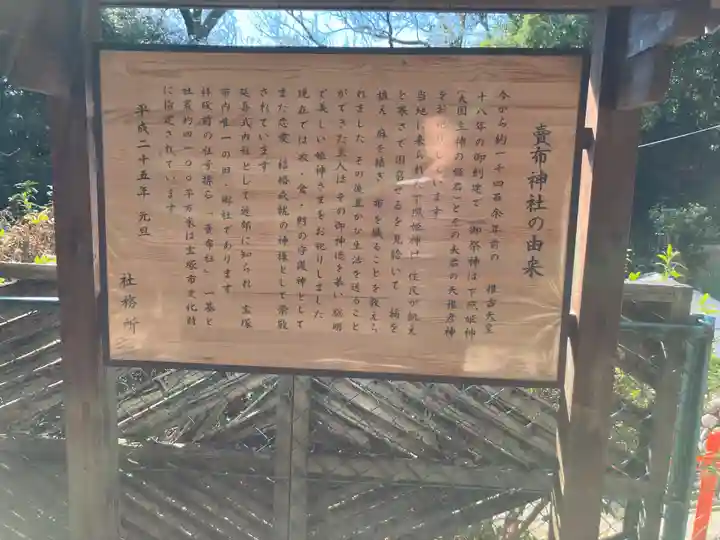 賣布神社の由来
今から約一千四百余年前の 推古天皇
十八年の御創建で 御祭神は下照姫神
(大国主神の姫君)とその夫君の天稚彦神
をお祀りしています
当地に来られた下照姫神は 住民が飢え
と寒さで困窮せるを見給いて 稲を
植え 麻を績ぎ 布を織ることを教えら
れました その後豊かな生活を送ること
ができた里人は その御神徳を慕い 聡明
で美しい姫神さまをお祀りしました
現在では衣・食・財の守護神として
また恋愛 結婚成就の神様として崇敬
されています
延喜式内社として近郷に知られ 宝塚
市内唯一の旧・郷社であります
拝殿前の社号標石「賣布社」一基と
社叢約四一〇〇平方米は宝塚市文化財
に指定されています
平成二十五年 元旦
社務所